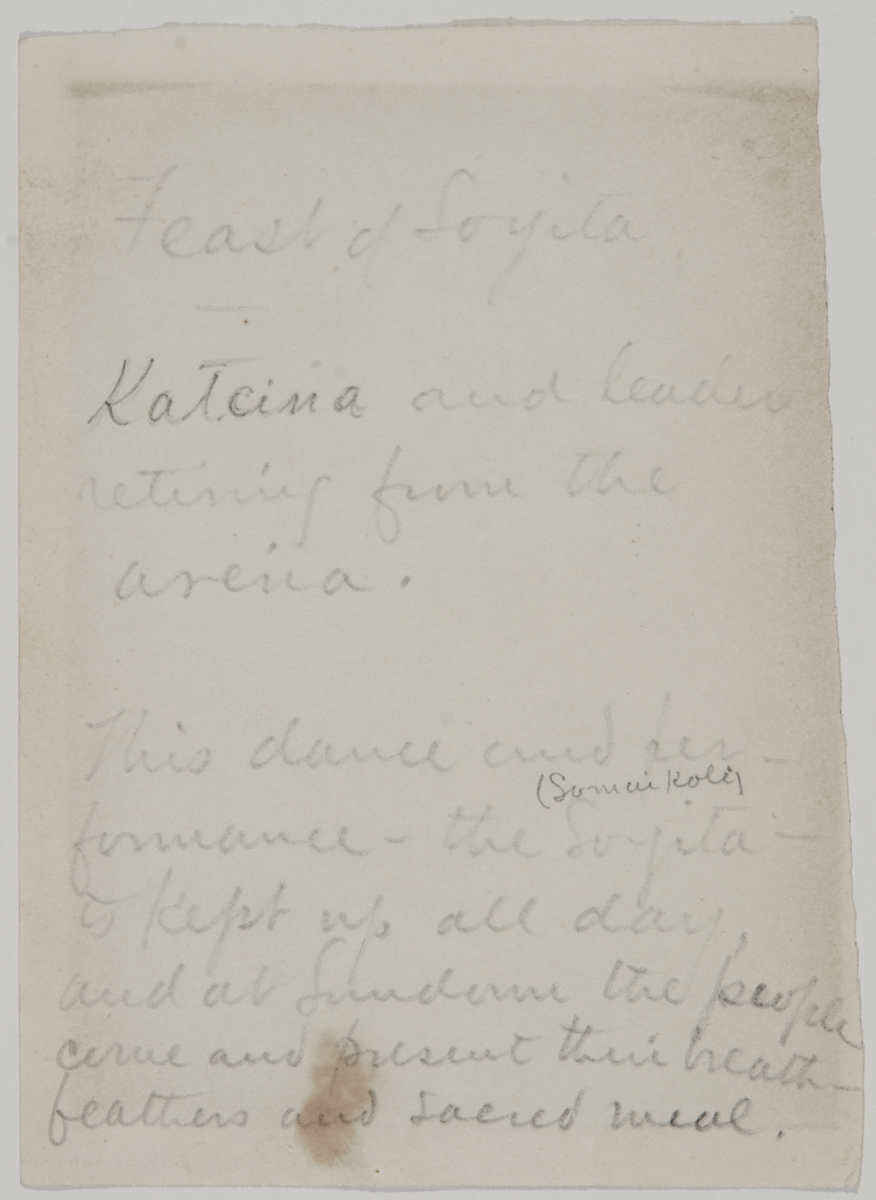 Feast of Soyita
—
Katcina and leader
retiring from the
arena.
This dance and per-
(Somaikoli)
formance - the Soyita -
is kept up all day,
and at Sundown the people
come and present their breath-
feathers and sacred meal.